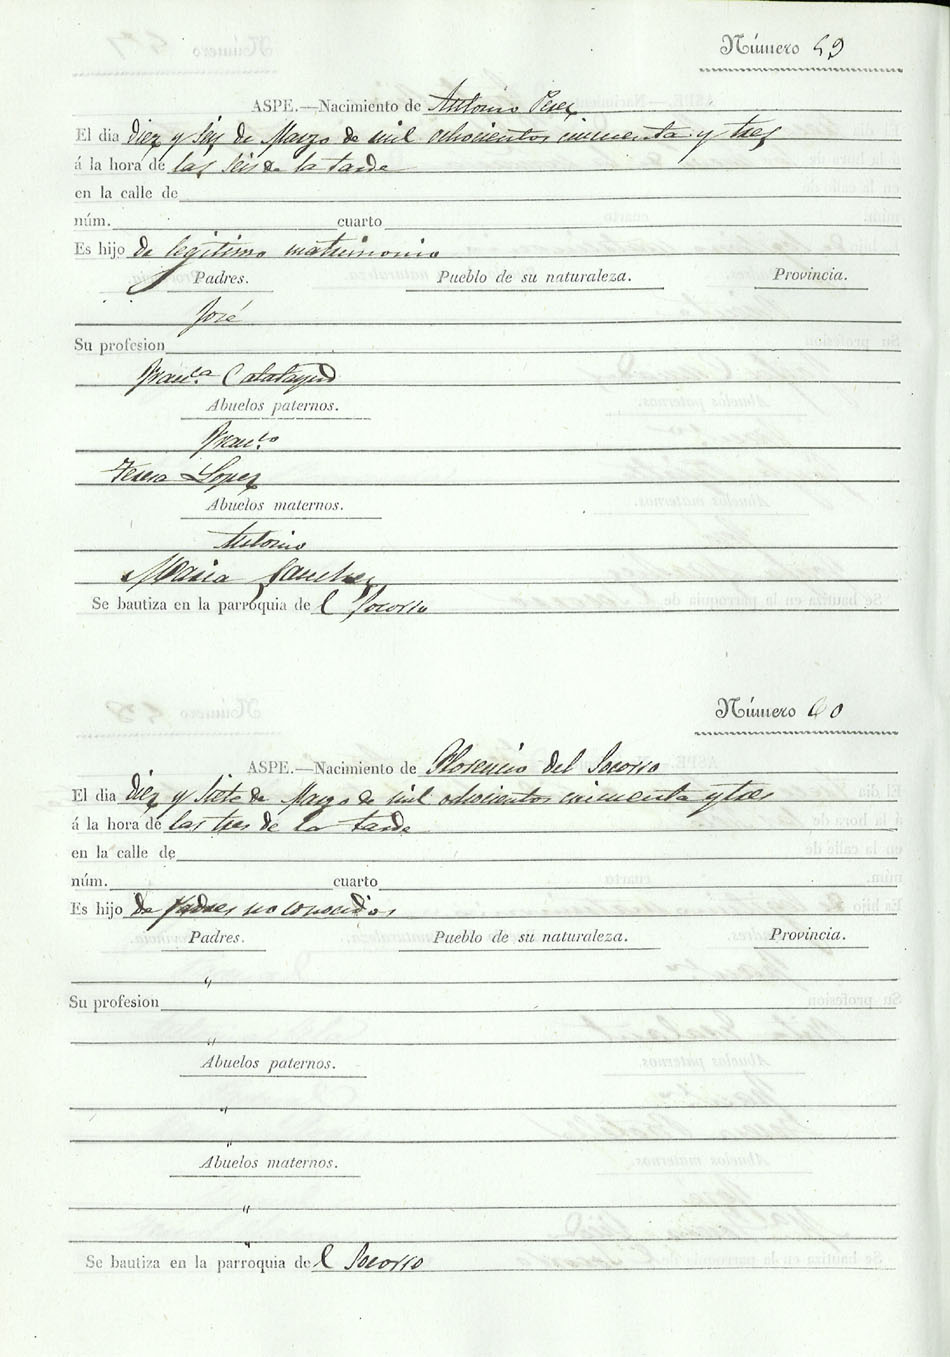 Número 59
ASPE.—Nacimiento de Antonio Perez
El dia diez y seis de Marzo de mil ochocientos cincuenta y tres
á la hora de las seis de la tarde
en la calle de
núm. cuarto
Es hijo de legitimo matrimonio
Padres. Pueblo de su naturaleza. Provincia.
José
Su profesion
Fran.ca Calatayud
Abuelos paternos.
Fran.co
Teresa Lopez
Abuelos maternos.
Antonio
Maria Sanchez
Se bautiza en la parroquia del Socorro
Número 60
ASPE.—Nacimiento de Florencio del Socorro
El dia diez y siete de Marzo de mil ochocientos cincuenta y tres
á la hora de las tres de la tarde
en la calle de
núm. cuarto
Es hijo de padres no conocidos
Padres. Pueblo de su naturaleza. Provincia.
"
Su profesion
"
Abuelos paternos.
"
"
Abuelos maternos.
"
"
Se bautiza en la parroquia del Socorro